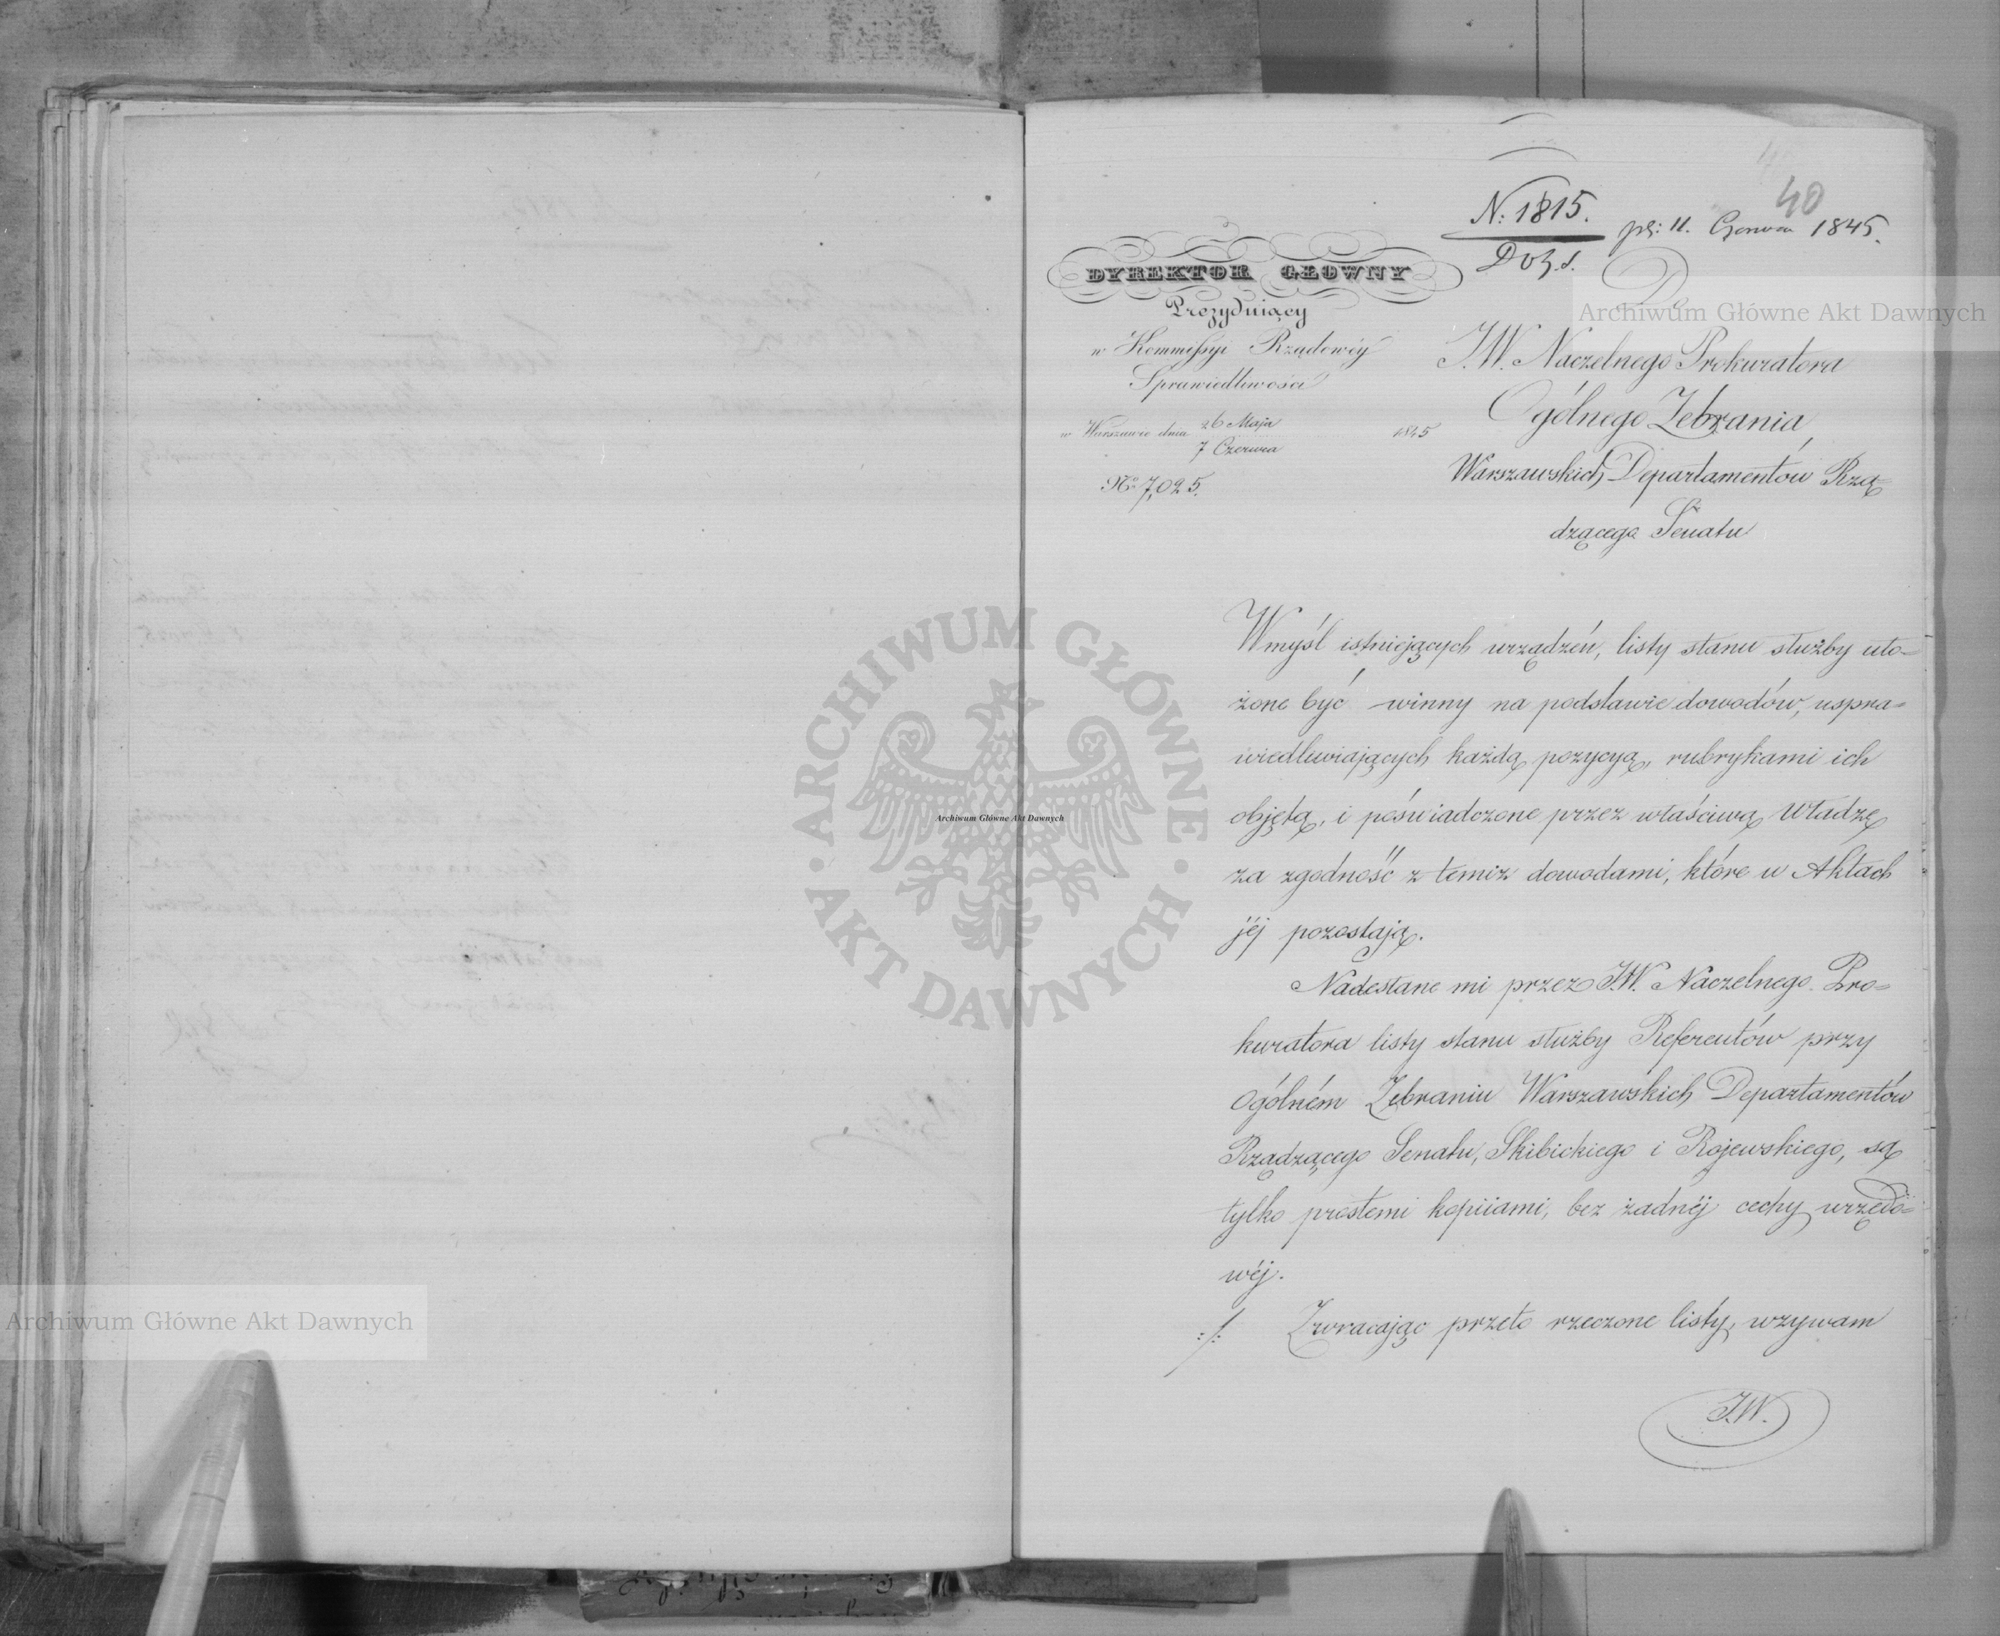 40
N: 1815.
Doz. s.
pr: 11. Czerwca 1845.
DYREKTOR GŁOWNY
Prezydujący
w Kommissyi Rządowéy
Sprawiedliwości
w Warszawie dnia 26 Maja
7 Czerwca
1845
No 7,025.
Do
J.W. Naczelnego Prokuratora
Ogólnego Zebrania
Warszawskich Departamentów Rzą=
dzącego Senatu
Wmyśl istniejących urządzeń, listy stanu służby uło=
żone być winny na podstawie dowodów, uspra=
wiedliwiających każdą pozycyą, rubrykami ich
objętą, i poświadczone przez właściwą Władzę
za zgodność z temiż dowodami, które w Aktach
jéj pozostają.
Nadesłane mi przez J.W. Naczelnego Pro=
kuratora listy stanu służby Referentów przy
Ogólném Zebraniu Warszawskich Departamentów
Rządzącego Senatu, Skibickiego i Rojewskiego, są
tylko prostemi kopiiami, bez żadnéj cechy urzędo=
wéj.
:/: Zwracając przeto rzeczone listy, wzywam
J.W.
Archiwum Główne Akt Dawnych
ARCHIWUM GŁÓWNE AKT DAWNYCH
Archiwum Główne Akt Dawnych
Archiwum Główne Akt Dawnych